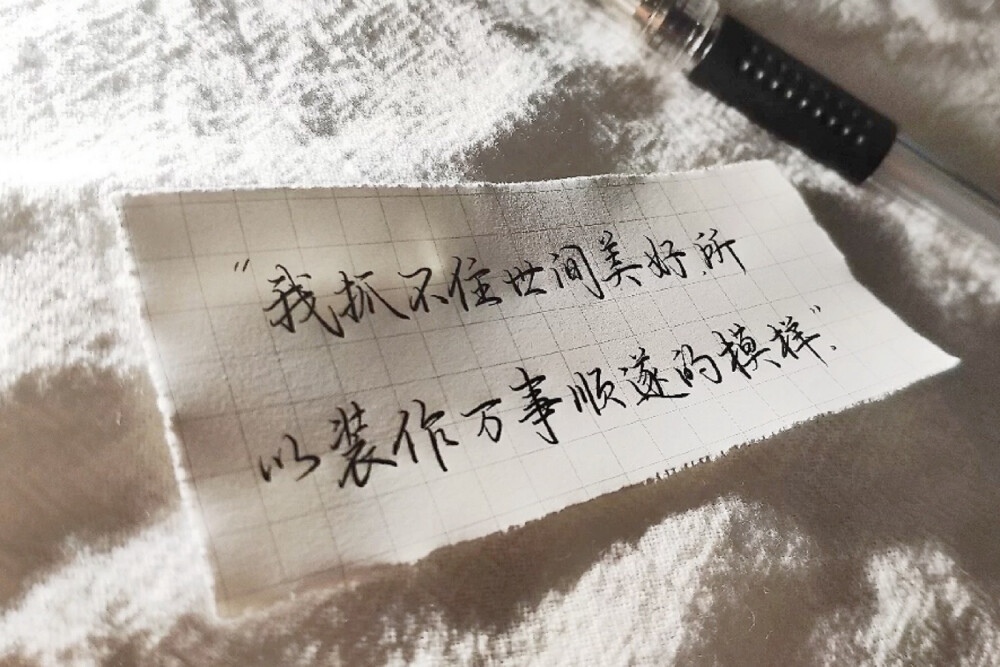 "我抓不住世间美好.所
以装作万事顺遂的模样."